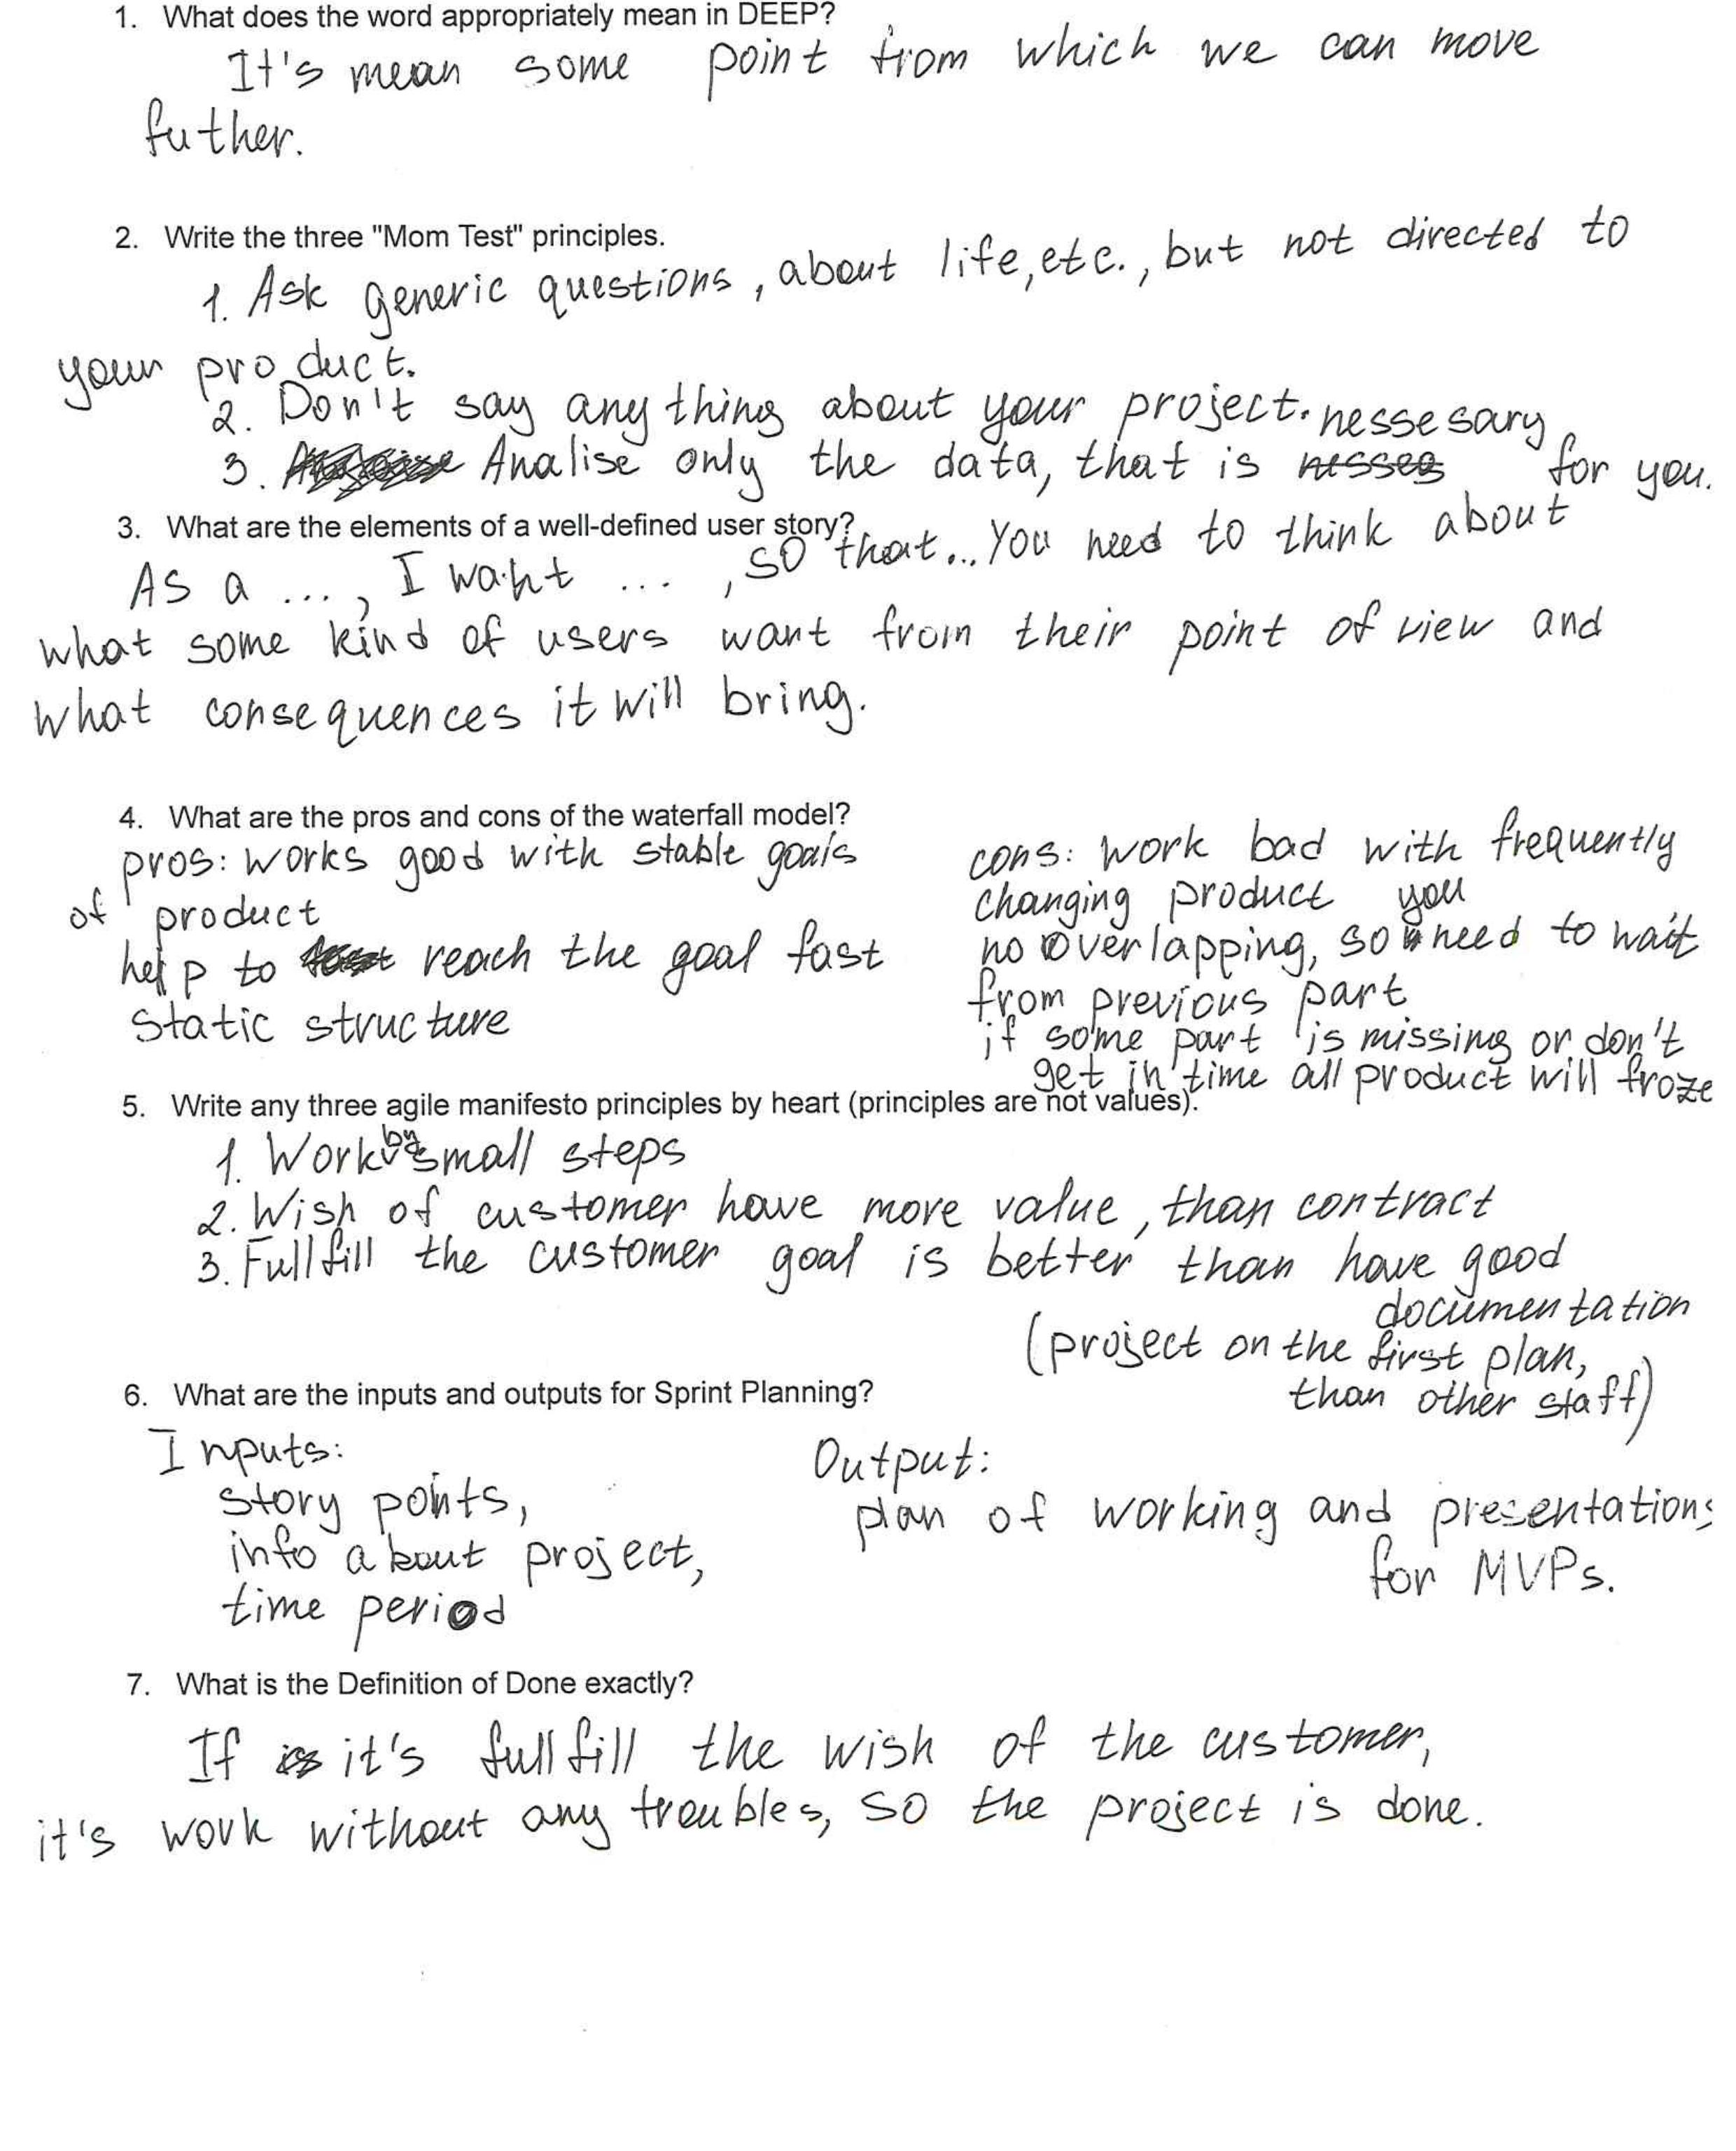 1. What does the word appropriately mean in DEEP?
It's mean some point from which we can move
futher.
2. Write the three "Mom Test" principles.
1. Ask generic questions, about life, etc., but not directed to
your product.
2. Don't say anything about your project.
3. Analise only the data, that is nessesary for you.
3. What are the elements of a well-defined user story?
As a ..., I want ..., so that... You need to think about
what some kind of users want from their point of view and
what consequences it will bring.
4. What are the pros and cons of the waterfall model?
pros: works good with stable goals
of product
help to reach the goal fast
static structure
cons: work bad with frequently
changing product
no overlapping, so you need to wait
from previous part
if some part is missing or don't
get in time all product will froze
5. Write any three agile manifesto principles by heart (principles are not values).
1. Work by small steps
2. Wish of customer have more value, than contract
3. Fullfill the customer goal is better than have good
documentation
(project on the first plan,
than other staff)
6. What are the inputs and outputs for Sprint Planning?
Inputs:
story points,
info about project,
time period
Output:
plan of working and presentations
for MVPs.
7. What is the Definition of Done exactly?
If it's fullfill the wish of the customer,
it's work without any troubles, so the project is done.